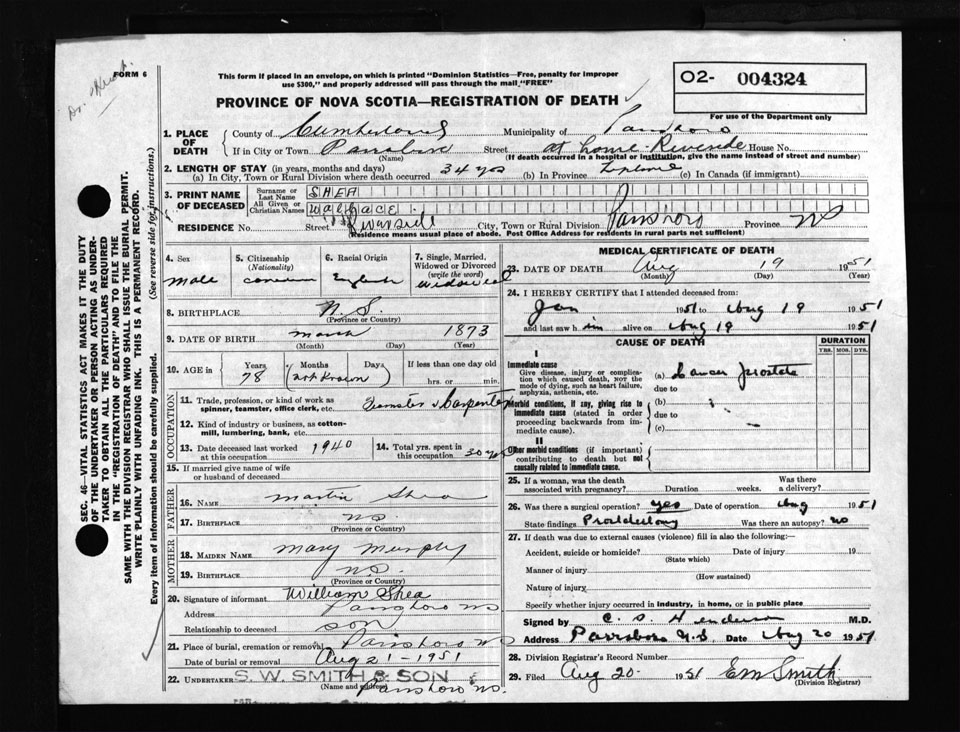 FORM 6
This form if placed in an envelope, on which is printed "Dominion Statistics—Free, penalty for improper
use $300," and properly addressed will pass through the mail "FREE"
O2- 004324
PROVINCE OF NOVA SCOTIA—REGISTRATION OF DEATH
For use of the Department only
1. PLACE OF DEATH County of Cumberland Municipality of Parrsboro
If in City or Town Street at home Riverside House No.
(Name) (If death occurred in a hospital or institution, give the name instead of street and number)
2. LENGTH OF STAY (in years, months and days)
(a) In City, Town or Rural Division where death occurred 34 yrs (b) In Province Lifetime (c) In Canada (if immigrant)
3. PRINT NAME OF DECEASED Surname or Last Name SHEA
All Given or Christian Names WALLACE
RESIDENCE No. Street Riverside City, Town or Rural Division Parrsboro Province NS
(Residence means usual place of abode. Post Office Address for residents in rural parts not sufficient)
4. Sex Male
5. Citizenship (Nationality)
6. Racial Origin English
7. Single, Married, Widowed or Divorced (write the word) widowed
8. BIRTHPLACE N.S.
(Province or Country)
9. DATE OF BIRTH March 1873
(Month) (Day) (Year)
10. AGE in Years 78 Months Days (not known) If less than one day old hrs. or min.
OCCUPATION
11. Trade, profession or kind of work as spinner, teamster, office clerk, etc. Teamster & Carpenter
12. Kind of industry or business, as cotton-mill, lumbering, bank, etc.
13. Date deceased last worked at this occupation 1940
14. Total yrs. spent in this occupation 30 yrs
15. If married give name of wife or husband of deceased
FATHER
16. NAME Martin Shea
17. BIRTHPLACE NS.
(Province or Country)
MOTHER
18. MAIDEN NAME Mary Murphy
19. BIRTHPLACE NS.
(Province or Country)
20. Signature of informant William Shea
Address Parrsboro NS
Relationship to deceased son
21. Place of burial, cremation or removal Parrsboro NS
Date of burial or removal Aug 21-1951
22. UNDERTAKER S. W. SMITH & SON
(Name and address) Parrsboro NS.
MEDICAL CERTIFICATE OF DEATH
23. DATE OF DEATH Aug 19 1951
(Month) (Day) (Year)
24. I HEREBY CERTIFY that I attended deceased from:
Jan 1951 to Aug 19 1951
and last saw him alive on Aug 19 1951
CAUSE OF DEATH
DURATION
YRS. MOS. DYS.
I
Immediate cause
Give disease, injury or complication which caused death, not the mode of dying, such as heart failure, asphyxia, asthenia, etc.
(a) Cancer prostate
due to
Morbid conditions, if any, giving rise to immediate cause (stated in order proceeding backwards from immediate cause).
(b)
due to
(c)
II
Other morbid conditions (if important) contributing to death but not causally related to immediate cause.
25. If a woman, was the death associated with pregnancy? Duration weeks. Was there a delivery?
26. Was there a surgical operation? yes Date of operation Aug 1951
State findings Was there an autopsy? no
27. If death was due to external causes (violence) fill in also the following:—
Accident, suicide or homicide? Date of injury 19
(State which)
Manner of injury
(How sustained)
Nature of injury
Specify whether injury occurred in industry, in home, or in public place
Signed by C. S. Henderson M.D.
Address Parrsboro N.S. Date Aug 20 1951
28. Division Registrar's Record Number
29. Filed Aug 20 1951 EM Smith
(Division Registrar)
SEC. 46—VITAL STATISTICS ACT MAKES IT THE DUTY
OF THE UNDERTAKER OR PERSON ACTING AS UNDER-
TAKER TO OBTAIN ALL THE PARTICULARS REQUIRED
IN THE "REGISTRATION OF DEATH" AND TO FILE THE
SAME WITH THE DIVISION REGISTRAR WHO SHALL ISSUE THE BURIAL PERMIT.
WRITE PLAINLY WITH UNFADING INK. THIS IS A PERMANENT RECORD.
Every item of information should be carefully supplied. (See reverse side for instructions.)